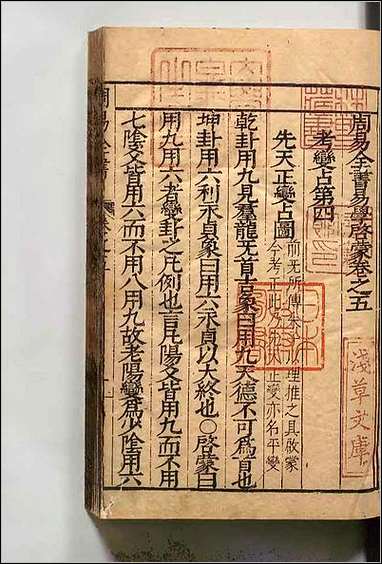 周易全書易學啓蒙卷之五
考變占第四
先天正變占圖
前无所傅本以理推之具啟蒙
合考正此乃先天正變亦名平變
乾卦用九見羣龍无首吉象曰用九天德不可爲首也
坤卦用六利永貞象曰用六永貞以大終也○啓蒙曰
用九用六者變卦之凡例也言凡陽爻皆用九而不用
七陰爻皆用六而不用八用九故老陽變爲少陰用六
淺草文庫